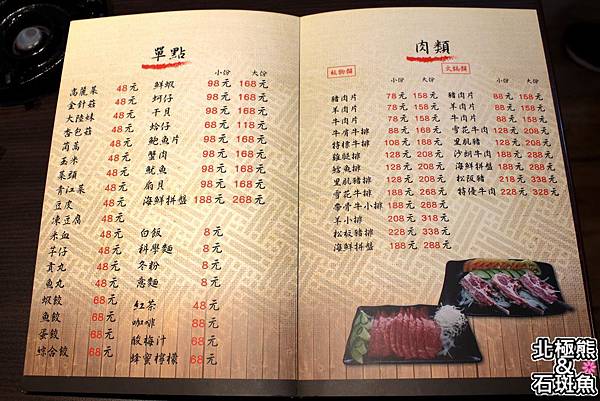 單點
高麗菜 48元
金針菇 48元
大陸妹 48元
杏包菇 48元
茼蒿 48元
玉米 48元
菜頭 48元
青江菜 48元
豆皮 48元
凍豆腐 48元
米血 48元
芋仔 48元
貢丸 48元
魚丸 48元
蝦餃 68元
魚餃 68元
蛋餃 68元
綜合餃 68元
小份 大份
鮮蝦 98元 168元
蚵仔 98元 168元
干貝 98元 168元
蛤仔 68元 118元
鮑魚片 98元 168元
蟹肉 98元 168元
魷魚 98元 168元
扇貝 98元 168元
海鮮拼盤 188元 268元
白飯 8元
科學麵 8元
冬粉 8元
意麵 8元
紅茶 48元
咖啡 88元
酸梅汁 68元
蜂蜜檸檬 68元
肉類
小份 大份
豬肉片 78元 158元
羊肉片 78元 158元
牛肉片 78元 158元
牛肩牛排 88元 168元
特樓牛排 108元 188元
雞腿排 128元 208元
鱈魚排 128元 208元
里肌豬排 128元 208元
雪花牛排 128元 208元
帶骨牛小排 188元 288元
羊小排 208元 318元
松板豬排 228元 338元
海鮮拼盤 188元 288元
火鍋類
小份 大份
豬肉片 88元 158元
羊肉片 88元 158元
牛肉片 88元 158元
雪花牛肉 128元 208元
里肌豬 128元 208元
沙朗牛肉 128元 208元
海鮮拼盤 188元 288元
松阪豬 218元 338元
特優牛肉 228元 328元
北極熊
&
石斑魚